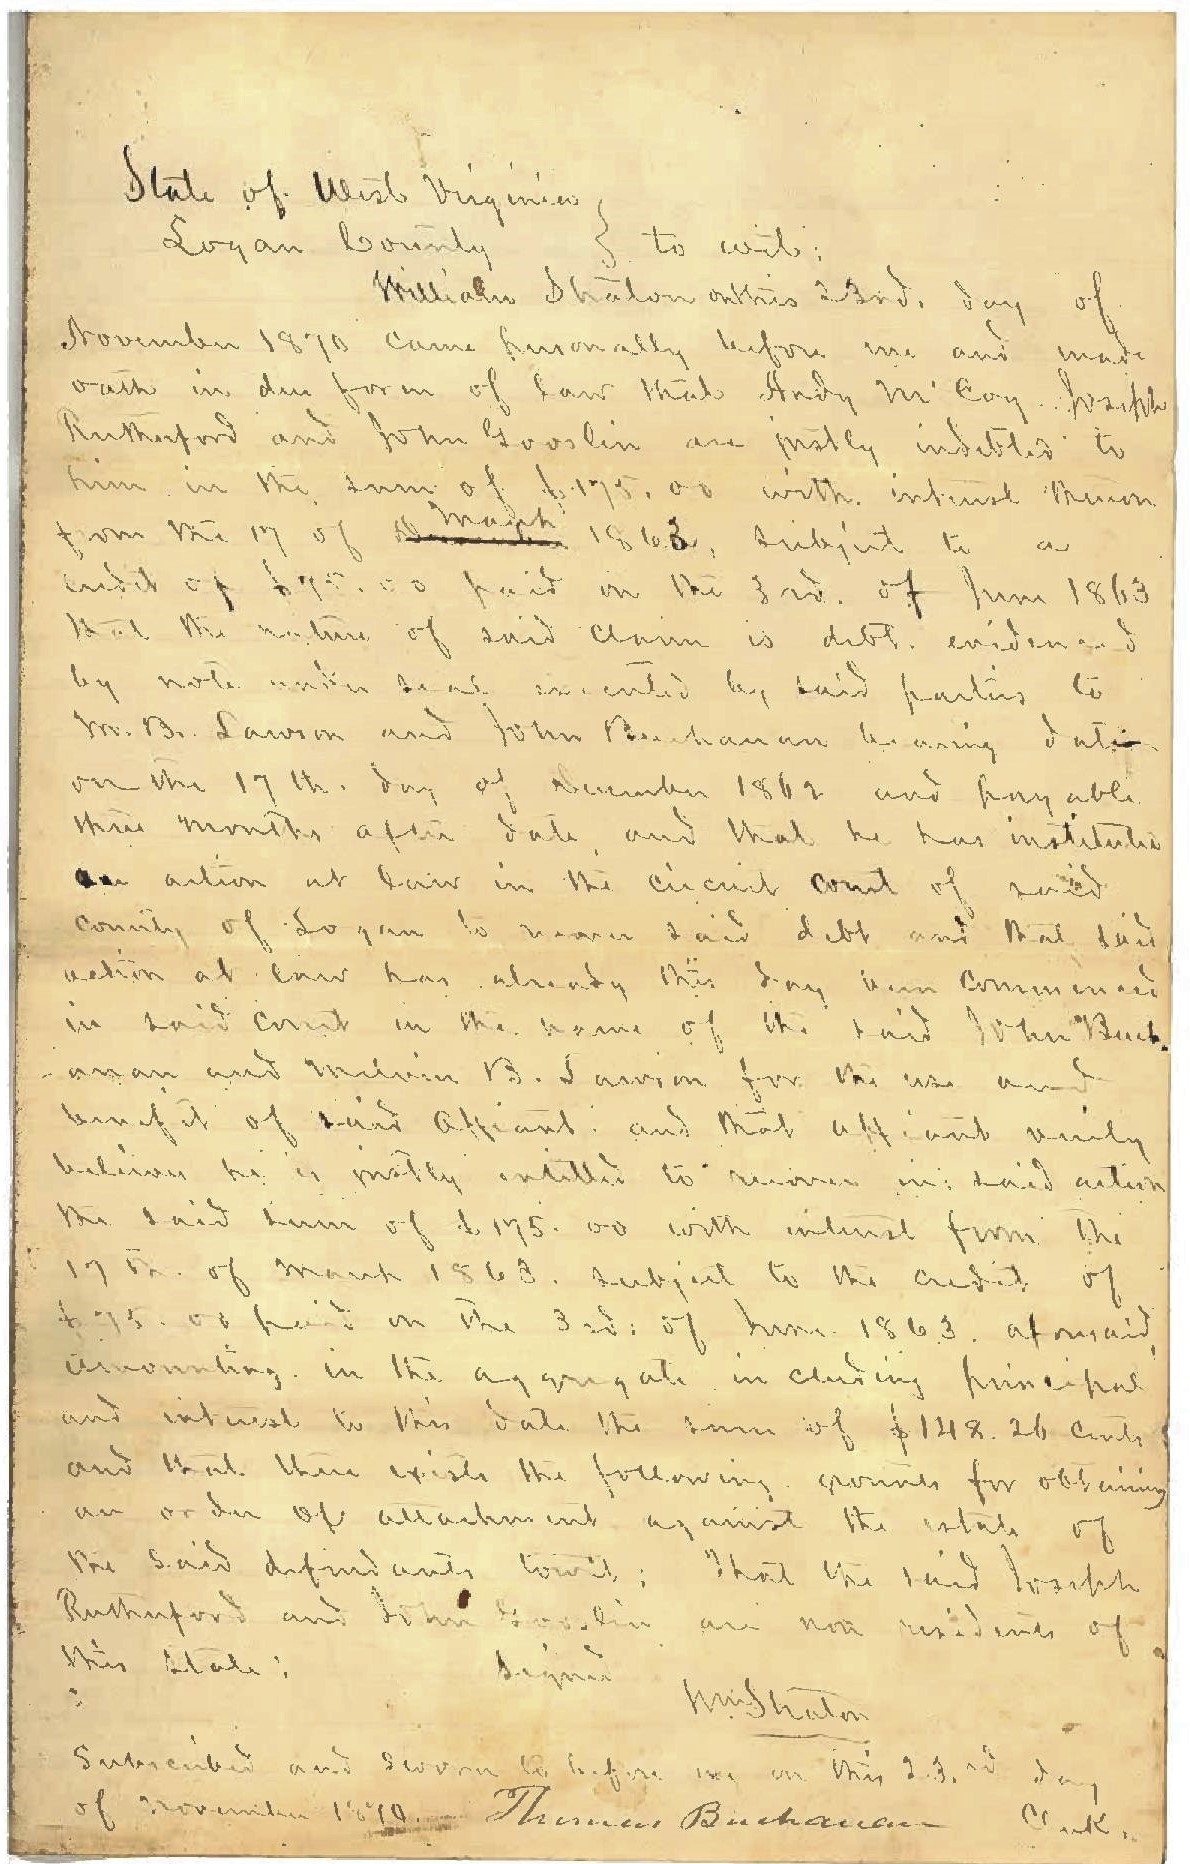 State of West Virginia }
Logan County } to wit:
William Straton on this 23rd. day of
November 1870 came personally before me and made
oath in due form of law that Andy McCoy Joseph
Rutherford and John Gooslin are justly indebted to
him in the sum of $175.00 with interest thereon
from the 17 of March 1863, subject to a
credit of $75.00 paid on the 3rd. of June 1863
that the nature of said claim is debt. evidenced
by note under seal executed by said parties to
M. B. Lawson and John Buchanan bearing date
on the 17th. day of December 1862 and payable
three months after date, and that he has instituted
an action at law in the circuit court of said
county of Logan to recover said debt and that said
action at law has already this day been commenced
in said court in the name of the said John Buch-
anan and Melvin B. Lawson for the use and
benefit of said affiant. and that affiant verily
believes he is justly intitled to recover in said action
the said sum of $175.00 with interest from the
17th. of March 1863. subject to the credit of
$75.00 paid on the 3rd: of June 1863. aforesaid,
amounting in the aggregate including principal
and interest to this date the sum of $148.26 cents
and that there exists the following grounds for obtaining
an order of attachment against the estate of
the said defendants towit: That the said Joseph
Rutherford and John Gooslin are non residents of
this state:
signed
Wm Straton
Subscribed and sworn to before me on this 23.rd day
of November 1870. Thomas Buchanan Clerk.